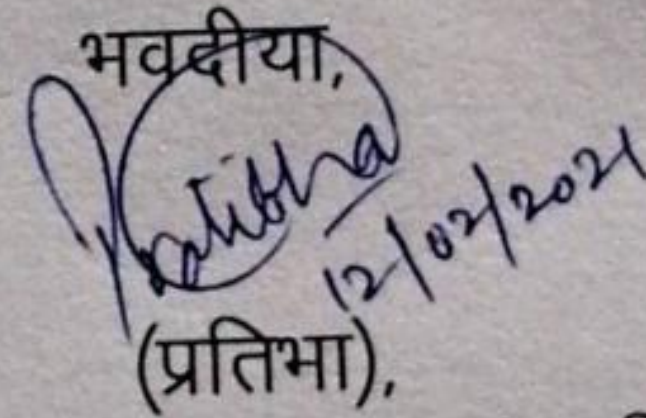 भवदीया,
Pratibha
12/02/2021
(प्रतिभा),